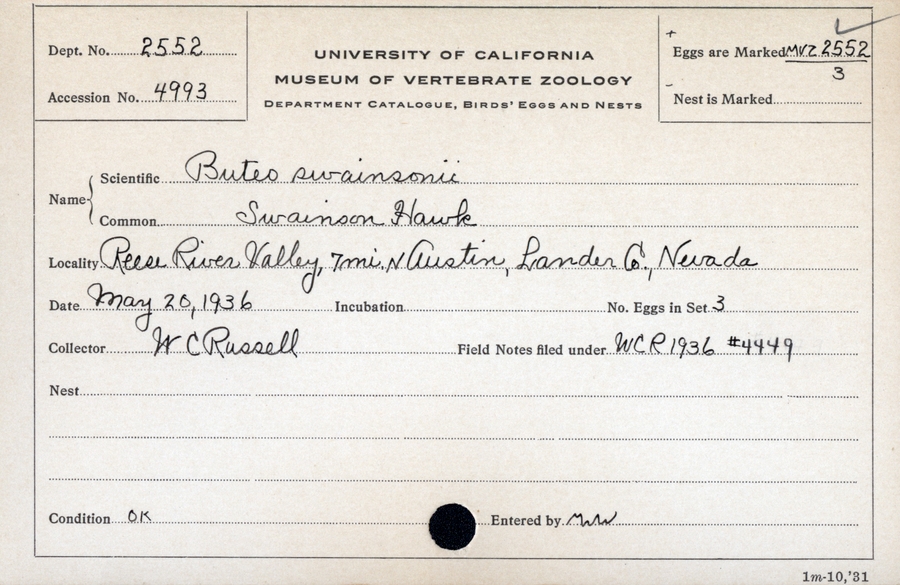 Dept. No. 2552
Accession No. 4993
UNIVERSITY OF CALIFORNIA
MUSEUM OF VERTEBRATE ZOOLOGY
DEPARTMENT CATALOGUE, BIRDS' EGGS AND NESTS
+
Eggs are Marked MVZ 2552
3
-
Nest is Marked
Name { Scientific Buteo swainsonii
Common Swainson Hawk
Locality Reese River Valley, 7mi, N Austin, Lander Co., Nevada
Date May 20, 1936 Incubation No. Eggs in Set 3
Collector W C Russell Field Notes filed under WCR 1936 #4449
Nest
Condition OK Entered by
1m-10,'31